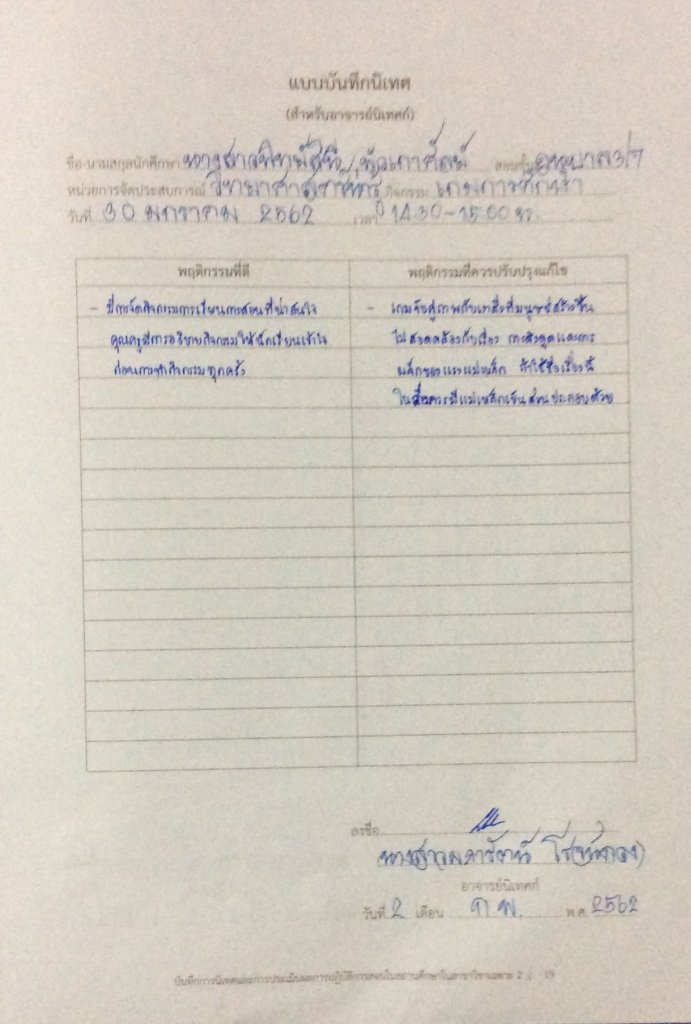 แบบบันทึกนิเทศ
(สำหรับอาจารย์นิเทศก์)
ชื่อ-นามสกุลนักศึกษา นางสาว สอนชั้น อนุบาล3/7
หน่วยการจัดประสบการณ์ วิทยาศาสตร์ กิจกรรม เกมการศึกษา
วันที่ 30 มกราคม 2562 เวลา 14.30-15.00 น.
พฤติกรรมที่ดี พฤติกรรมที่ควรปรับปรุงแก้ไข
- มีการจัดกิจกรรมการเรียนการสอนที่น่าสนใจ
คุณครูมีการอธิบายกิจกรรมให้นักเรียนเข้าใจ
ก่อนการทำกิจกรรมทุกครั้ง
- เกมจับคู่ภาพกับเงาสิ่งที่มนุษย์สร้างขึ้น
ไม่สอดคล้องกับเรื่อง การดึงดูดและการ
ผลักของแรงแม่เหล็ก ถ้าใช้ชื่อเรื่องนี้
ในสื่อควรมีแม่เหล็กเป็นส่วนประกอบด้วย
ลงชื่อ
นางสาว
อาจารย์นิเทศก์
วันที่ 2 เดือน ก.พ. พ.ศ. 2562
บันทึกการนิเทศและการประเมินผลการปฏิบัติการสอนในสถานศึกษาในสาขาวิชาเฉพาะ 2 | 19